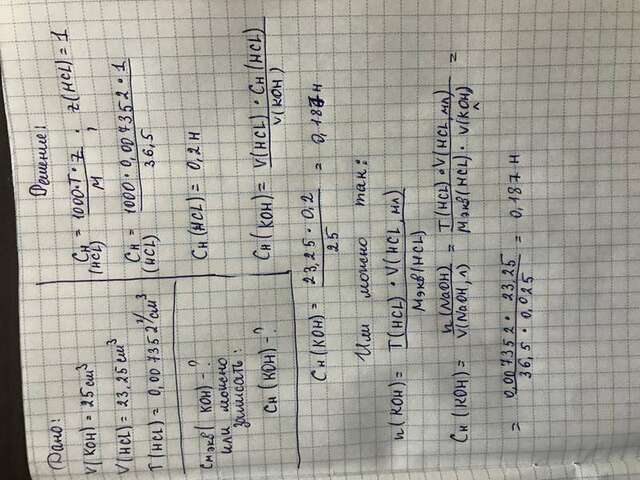 Дано:
V(KOH) = 25 см³
V(HCL) = 23,25 см³
T(HCL) = 0,007352 г/см³
Cмэкв(KOH) - ?
или можно
записать:
Cн(KOH) - ?
Решение:
Cн (HCL) = 1000·T·z / M ; z(HCL) = 1
Cн (HCL) = 1000·0,007352·1 / 36,5
Cн(HCL) = 0,2 н
Cн(KOH) = V(HCL)·Cн(HCL) / V(KOH)
Cн(KOH) = 23,25·0,2 / 25 = 0,187 н
Или можно так:
n(KOH) = T(HCL)·V(HCL, мл) / Mэкв(HCL)
Cн(KOH) = n(NaOH) / V(NaOH, л) = T(HCL)·V(HCL, мл) / Mэкв(HCL)·V(KOH) =
= 0,007352·23,25 / 36,5·0,025 = 0,187 н